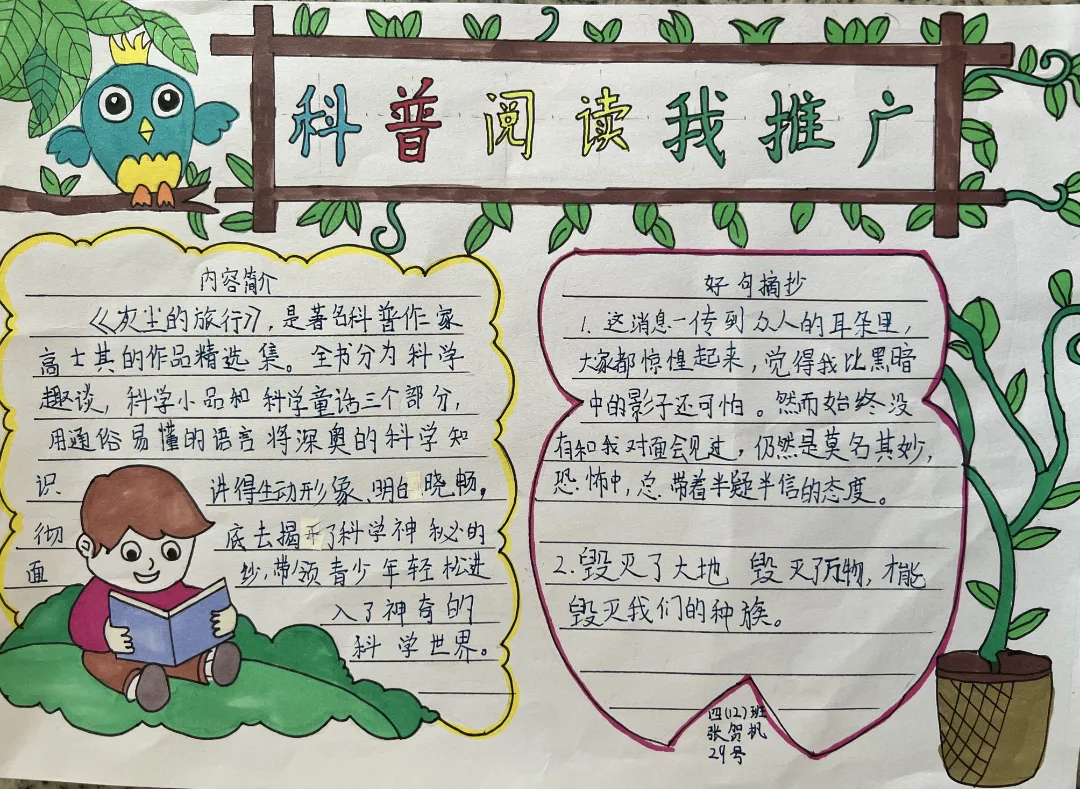 科普阅读我推广
内容简介
《灰尘的旅行》，是著名科普作家
高士其的作品精选集。全书分为科学
趣谈，科学小品和科学童话三个部分，
用通俗易懂的语言将深奥的科学知
识讲得生动形象、明白晓畅，
彻底去揭开了科学神秘的
面纱，带领青少年轻松进
入了神奇的
科学世界。
好句摘抄
1.这消息一传到众人的耳朵里，
大家都惊惶起来，觉得我比黑暗
中的影子还可怕。然而始终没
有和我对面会见过，仍然是莫名其妙，
恐怖中，总带着半疑半信的态度。
2.毁灭了大地 毁灭了万物，才能
毁灭我们的种族。
四(12)班
张贺帆
29号